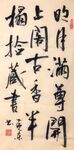 明月滿尊開
上閣古香半
榻拾藏書